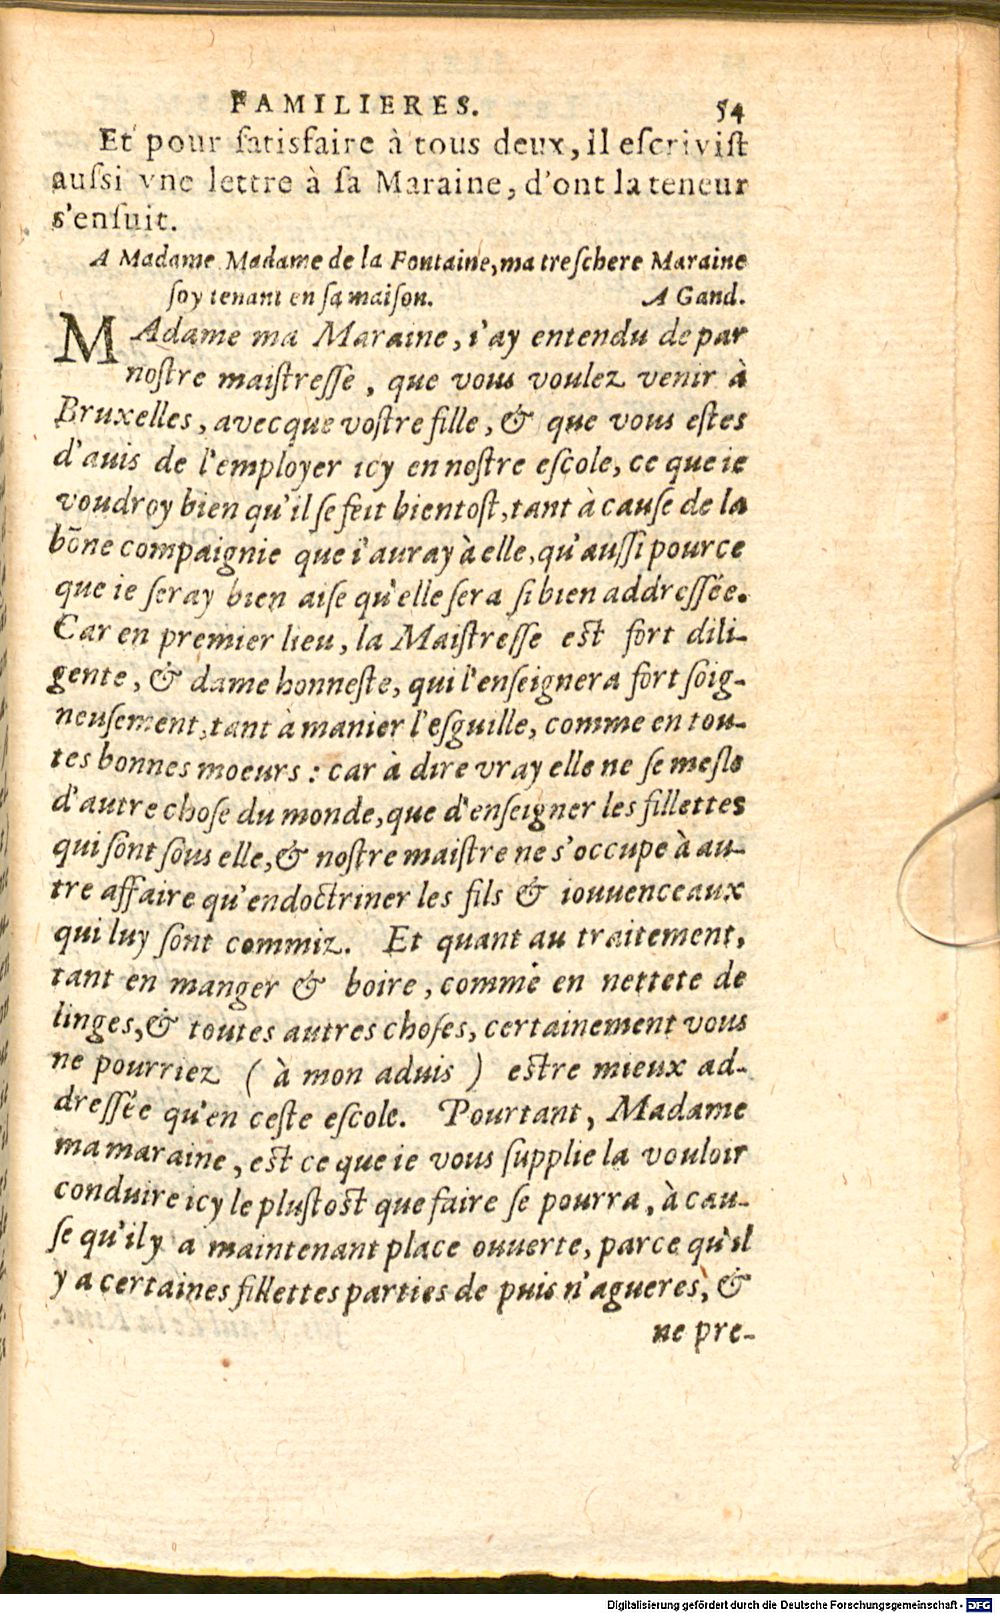 FAMILIERES. 54
Et pour ſatisfaire à tous deux, il eſcriviſt
auſsi vne lettre à ſa Maraine, d'ont la teneur
s'enſuit.
A Madame Madame de la Fontaine, ma treſchere Maraine
ſoy tenant en ſa maiſon. A Gand.
MAdame ma Maraine, i'ay entendu de par
noſtre maiſtreſſe, que vous voulez venir à
Bruxelles, avecque voſtre fille, & que vous eſtes
d'auis de l'employer icy en noſtre eſcole, ce que ie
voudroy bien qu'il ſe feit bientoſt, tant à cauſe de la
bōne compaignie que i'auray à elle, qu'auſſi pource
que ie ſeray bien aiſe qu'elle ſera ſi bien addreſſée.
Car en premier lieu, la Maiſtreſſe eſt fort dili-
gente, & dame honneſte, qui l'enſeignera fort ſoig-
neuſement, tant à manier l'eſguille, comme en tou-
tes bonnes moeurs : car à dire vray elle ne ſe meſle
d'autre choſe du monde, que d'enſeigner les fillettes
qui ſont ſous elle, & noſtre maiſtre ne s'occupe à au-
tre affaire qu'endoctriner les fils & iouuenceaux
qui luy ſont commiz. Et quant au traitement,
tant en manger & boire, comme en nettete de
linges, & toutes autres choſes, certainement vous
ne pourriez ( à mon aduis ) eſtre mieux ad-
dreſſée qu'en ceſte eſcole. Pourtant, Madame
ma maraine, eſt ce que ie vous ſupplie la vouloir
conduire icy le pluſtoſt que faire ſe pourra, à cau-
ſe qu'il y a maintenant place ouuerte, parce qu'il
y a certaines fillettes parties de puis n'agueres, &
ne pre-
Digitalisierung gefördert durch die Deutsche Forschungsgemeinschaft - DFG